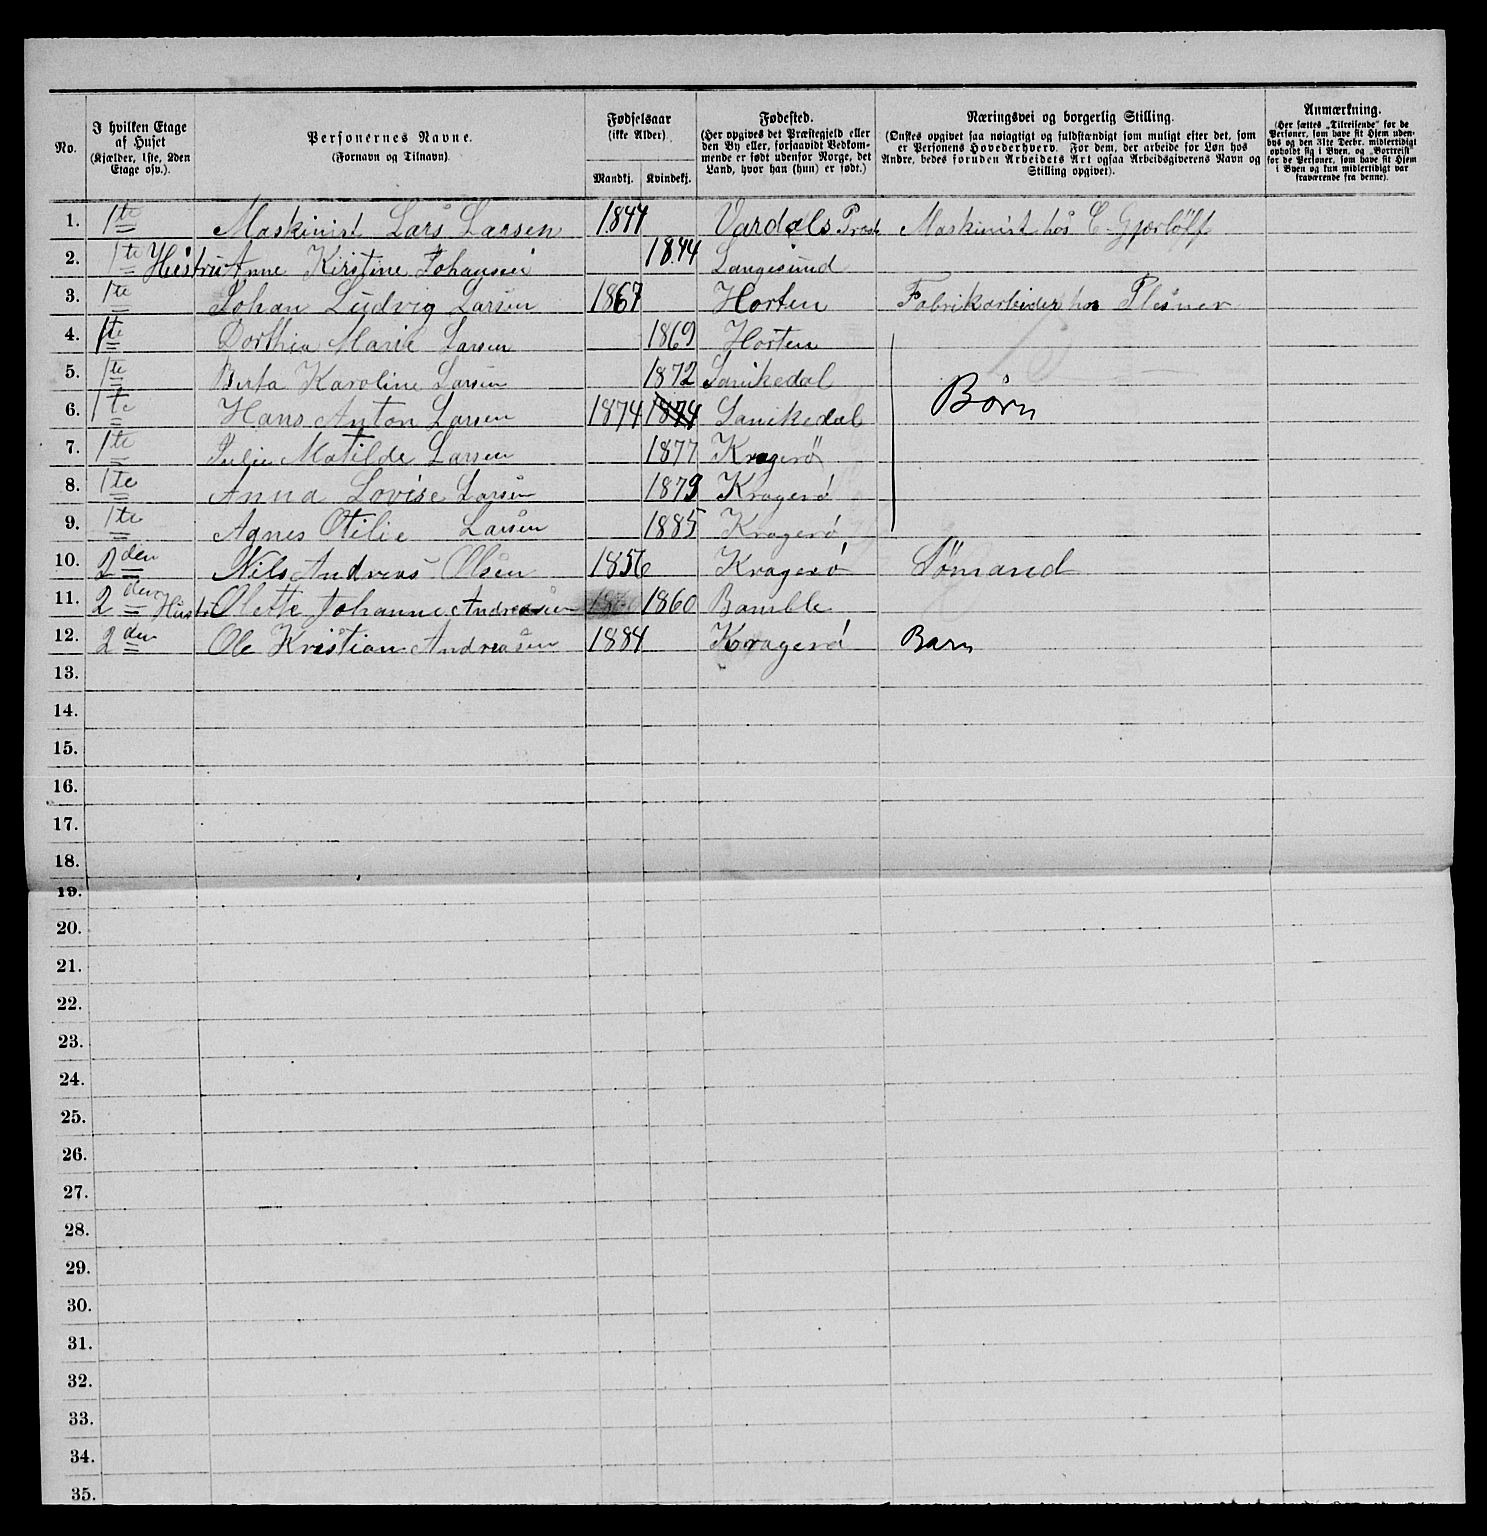 No.
I hvilken Etage af Huset (Kjælder, 1ste, 2den Etage osv.).
Personernes Navne. (Fornavn og Tilnavn).
Fødselsaar (ikke Alder).
Mandkj. Kvindekj.
Fødested. (Her opgives det Præstegjeld eller den By eller, forsaavidt Vedkommende er født udenfor Norge, det Land, hvor han (hun) er født.)
Næringsvei og borgerlig Stilling. (Ønskes opgivet saa nøiagtigt og fuldstændigt som muligt efter det, som er Personens Hovederhverv. For dem, der arbeide for Løn hos Andre, bedes foruden Arbeidets Art ogsaa Arbeidsgiverens Navn og Stilling opgivet).
Anmærkning. (Her sættes „Tilreisende“ for de Personer, som have sit Hjem udenbys og den 31te Decbr. midlertidigt opholdt sig i Byen, og „Bortreist“ for de Personer, som have sit Hjem i Byen og kun midlertidigt var fraværende fra denne).
1. 1te Maskinist Lars Larsen 1844 Vardals Præst Maskinist hos C. Gjerløff
2. 1te Hustru Anne Kirstine Johansen 1844 Langesund
3. 1te Johan Ludvig Larsen 1867 Horten Fabrikarbeider hos Plesner
4. 1te Dorthea Marie Larsen 1869 Horten
5. 1te Berta Karoline Larsen 1872 Sanikedal
6. 1te Hans Anton Larsen 1874 1874 Sanikedal Børn
7. 1te Julie Matilde Larsen 1877 Kragerø
8. 1te Anna Lovise Larsen 1879 Kragerø
9. 1te Agnes Otilie Larsen 1885 Kragerø
10. 2den Nils Andreas Olsen 1856 Kragerø Sømand
11. 2den Hustr Olette Johanne Andreasen 1860 Bamble
12. 2den Ole Kristian Andreasen 1884 Kragerø Barn
13.
14.
15.
16.
17.
18.
19.
20.
21.
22.
23.
24.
25.
26.
27.
28.
29.
30.
31.
32.
33.
34.
35.